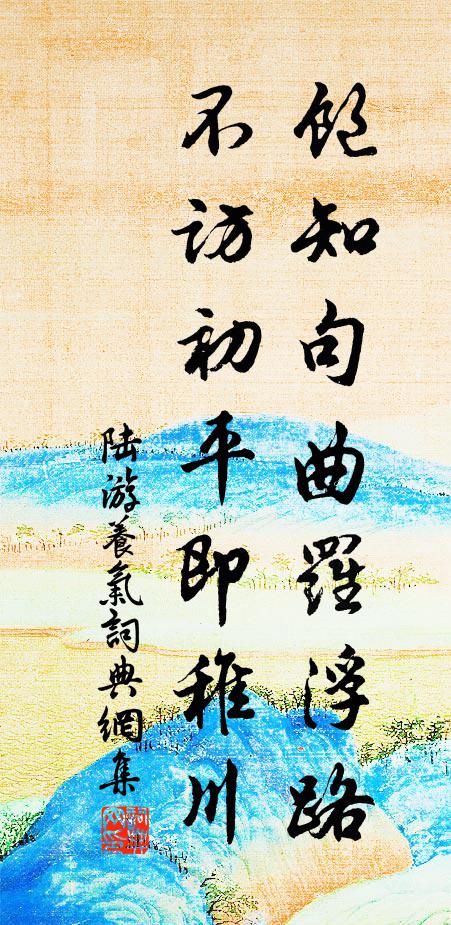 飽知句曲羅浮路
不訪初平即稚川
陆游養氣詞典網集